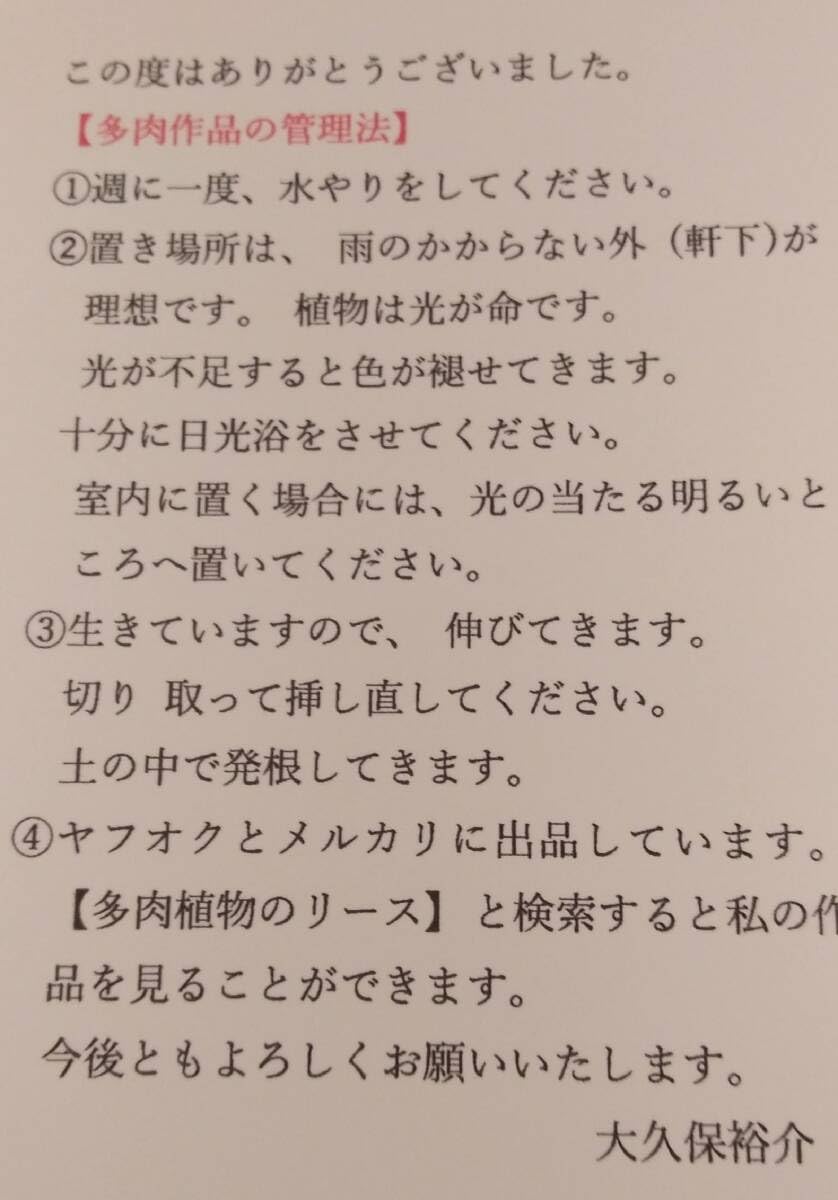 この度はありがとうございました。
【多肉作品の管理法】
①週に一度、水やりをしてください。
②置き場所は、 雨のかからない外（軒下)が
理想です。 植物は光が命です。
光が不足すると色が褪せてきます。
十分に日光浴をさせてください。
室内に置く場合には、光の当たる明るいと
ころへ置いてください。
③生きていますので、 伸びてきます。
切り 取って挿し直してください。
土の中で発根してきます。
④ヤフオクとメルカリに出品しています。
【多肉植物のリース】と検索すると私の作
品を見ることができます。
今後ともよろしくお願いいたします。
大久保裕介